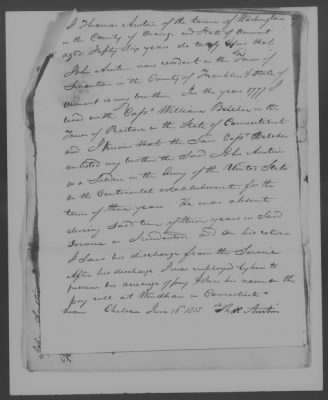 I Thomas Austin of the town of Washington
in the County of Orange and State of Vermont
aged Fifty Six years do testify &
John Austin now resident in the Town of
in the County of Franklin & State of
Vermont is my brother. In the year 1777 I
lived with Capt William Belcher in the
Town of Preston in the State of Connecticut
and I know that the Said Capt Belcher
enlisted my brother the Said John Austin
as a Soldier in the Army of the United States
on the Continental establishment for the
term of three years. He was absent
during Said term of three years in Said
Service as I understood and on his return
I Saw his discharge from the Service
After his discharge I was employed by him to
receive his arrears of pay I Saw his name on the
pay roll at Windham in Connecticut
Chelsea June 16 1818 Thos Austin
John Austin